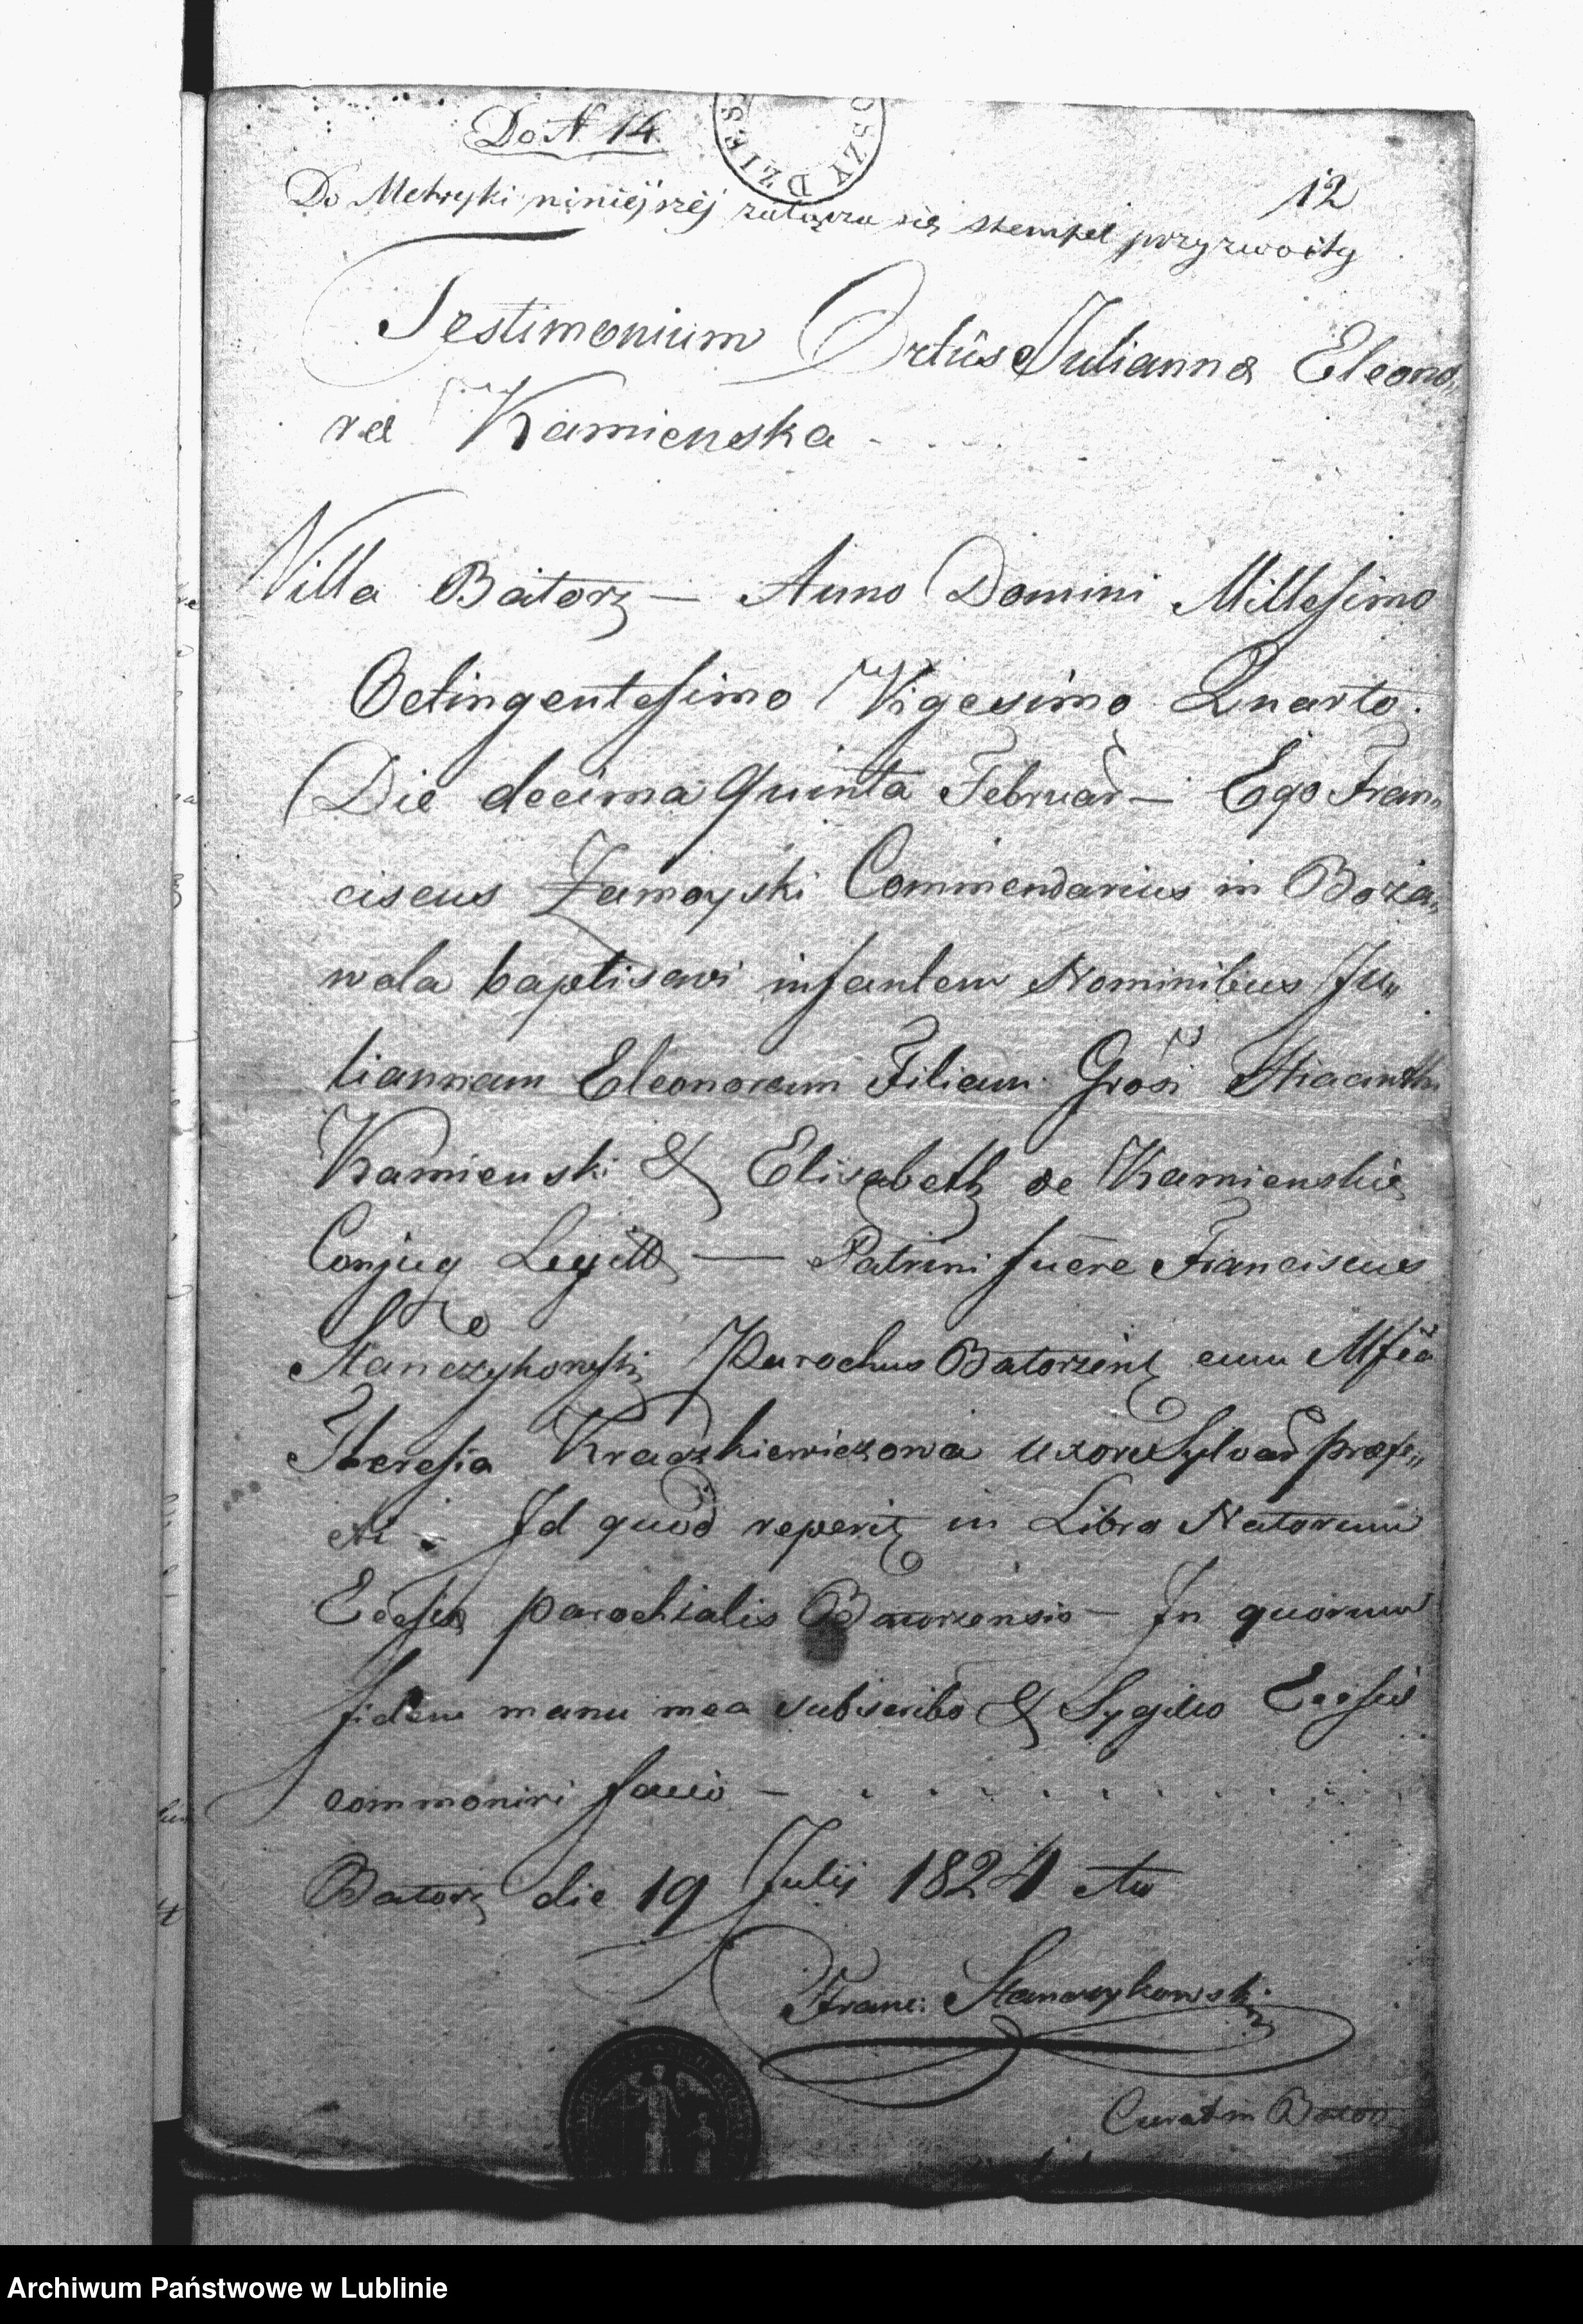 Do N 14.
DZIES OSZY
12
Do Metryki niniéjszéj załącza się stempel przyzwoity
Testimonium Ortûs Julianna Eleono„
ra Kamienska
Villa Batorz — Anno Domini Millesimo
Octingentesimo Vigesimo Quarto.
Die decima quinta Februar — Ego Fran„
ciscus Zamoyski Commendarius in Boża„
wola baptisavi infantem Nominibus Ju„
liannam Eleonoram Filiam Grosi Hiacinthi
Kamienski & Elisabeth de Kamienskie
Conjug Legitt — Patrini fuere Franciscus
Stanczykowski Parochus Batorzens cum Mfca
Theresia Kradzkiewiczowa uxore Sylvar praefe„
cti — Id quod reperit in Libro Natorum
Eccsia parochialis Batorzensis — In quorum
fidem manu mea subscribo & Sygillo Eccsia
commoniri facio —
Batorz die 19 Julij 1824 Ao
Franc: Stanczykowski
Curat in Bator
Archiwum Państwowe w Lublinie